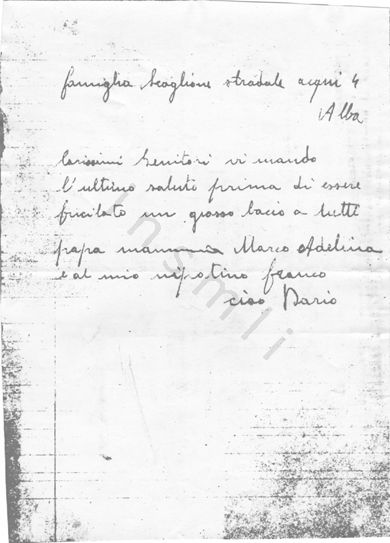 famiglia Scaglione stradale acqui 4
Alba
Carissimi Genitori vi mando
l'ultimo saluti prima di essere
fucilato un grosso bacio a tutti
papa mamma Marco Adelina
e al mio nipotino franco
ciao Dario
insmli